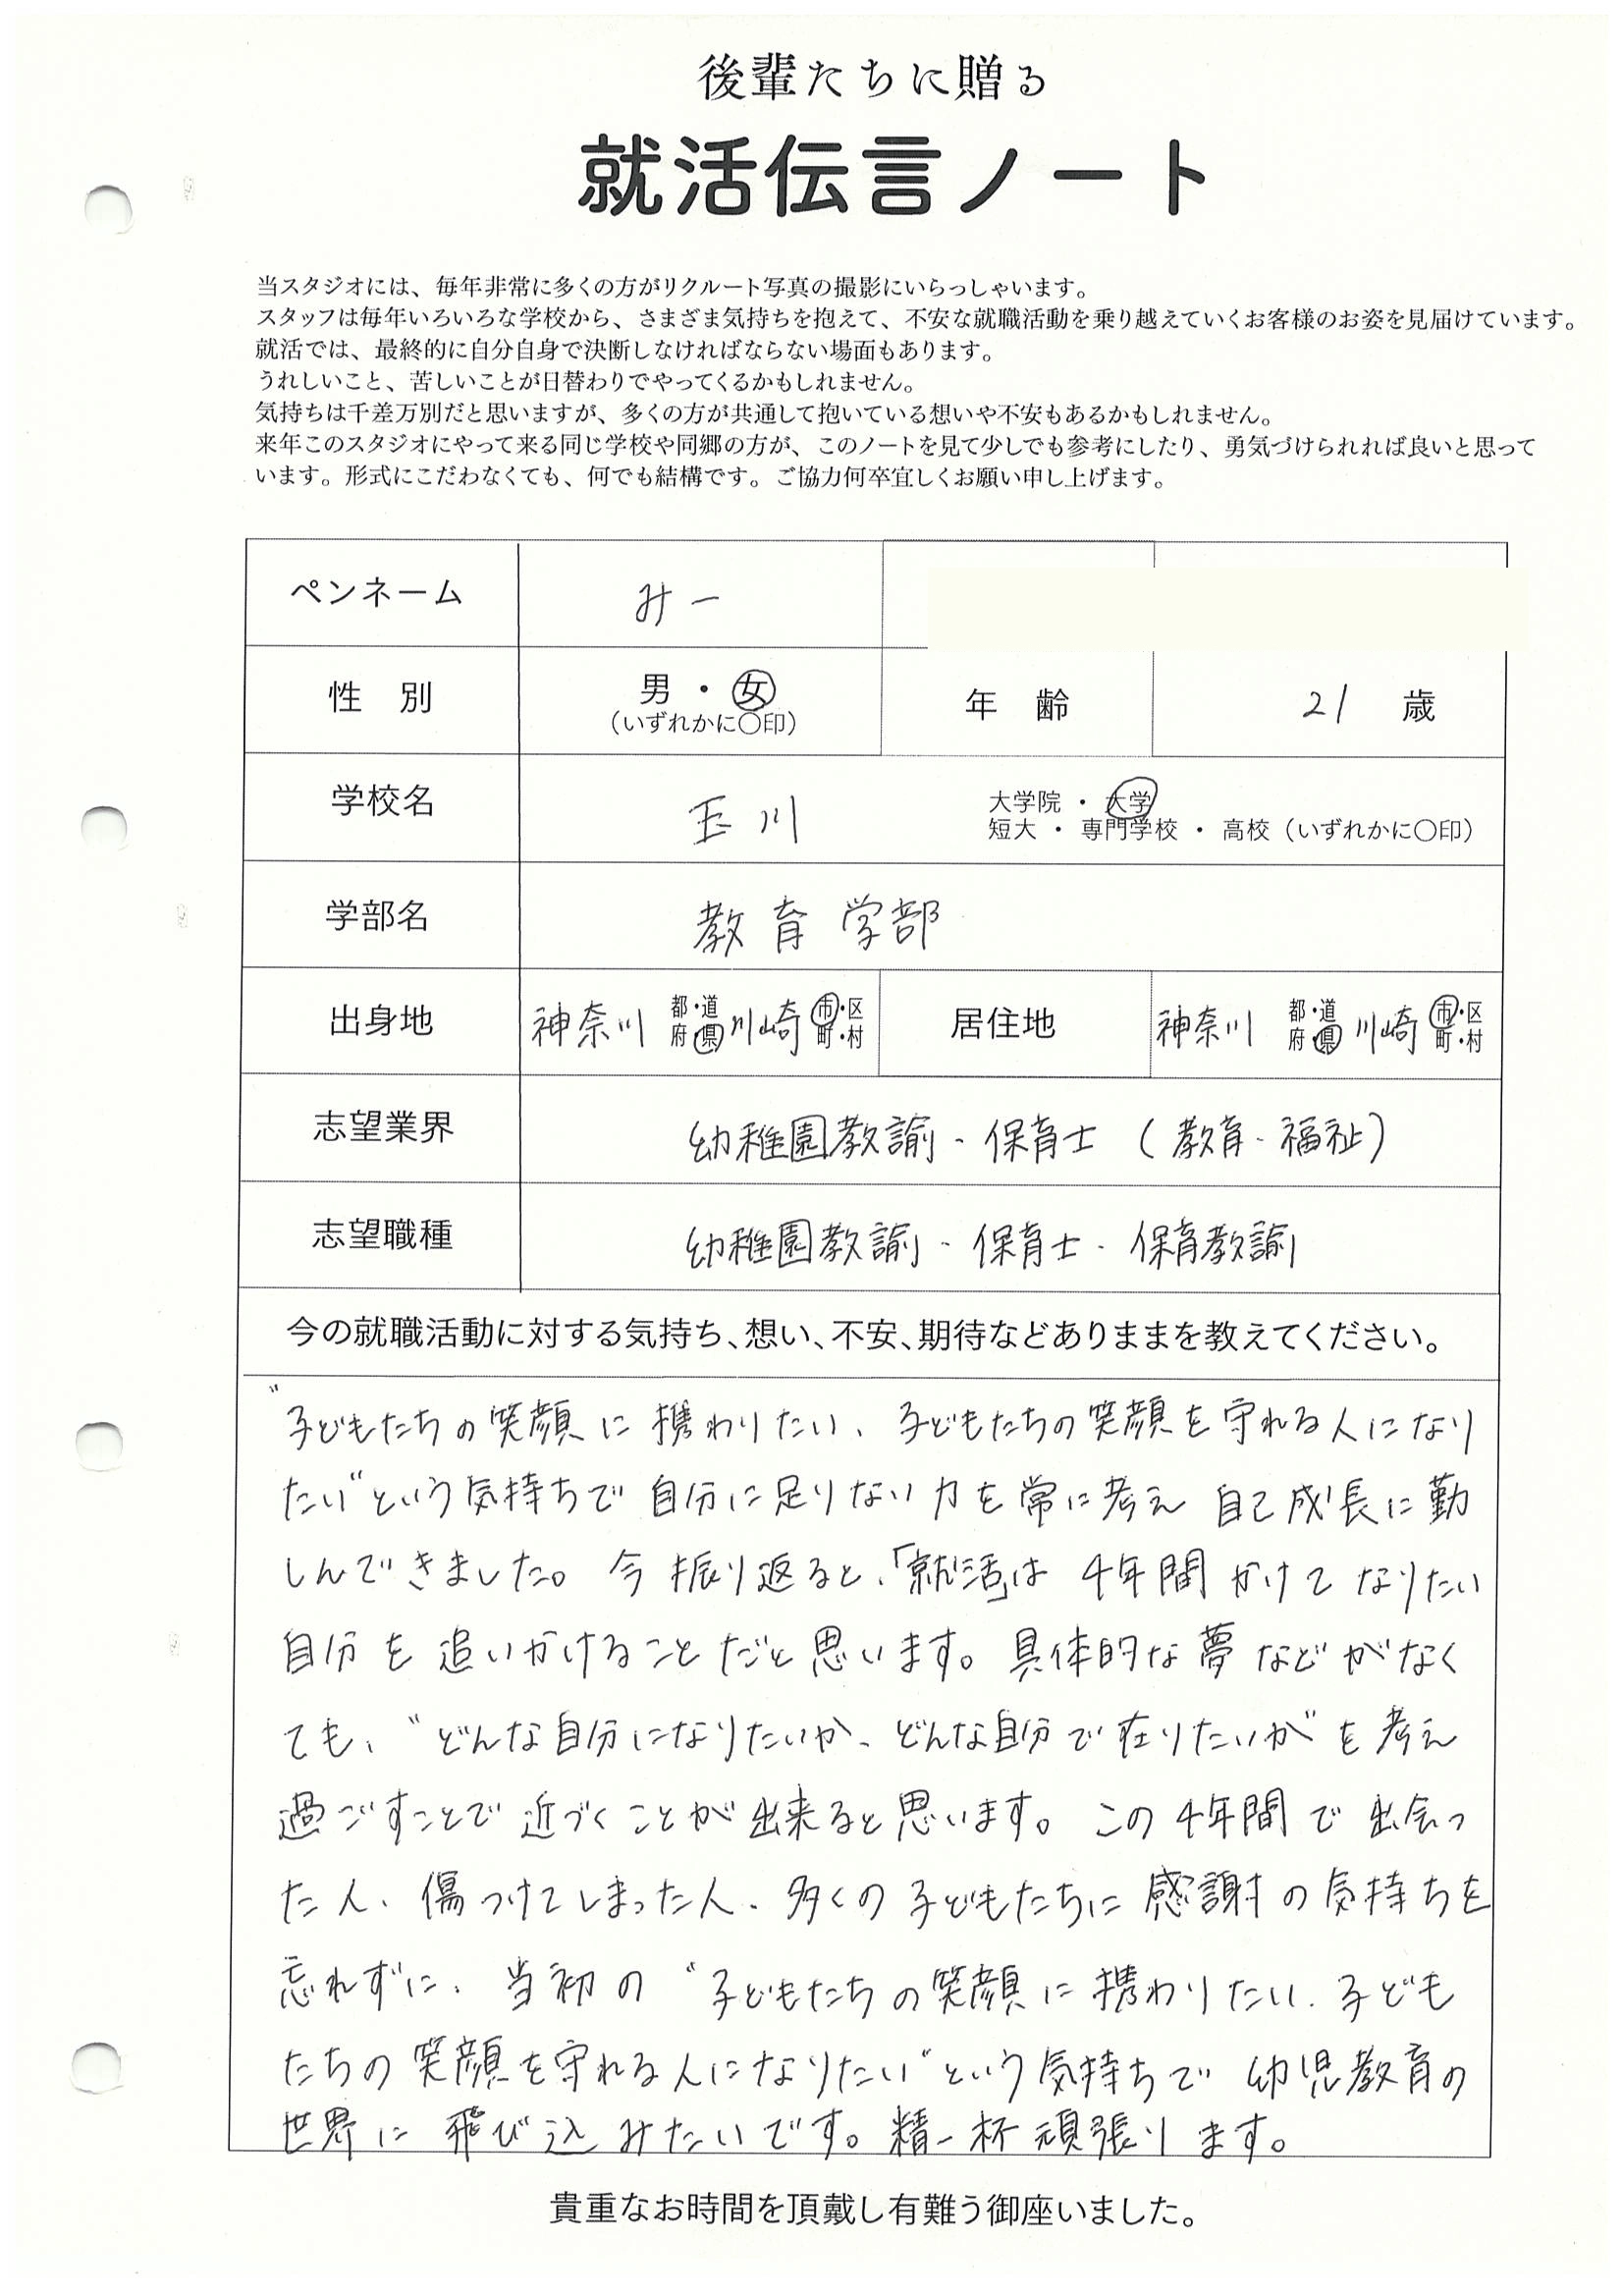 後輩たちに贈る
就活伝言ノート
当スタジオには、毎年非常に多くの方がリクルート写真の撮影にいらっしゃいます。
スタッフは毎年いろいろな学校から、さまざま気持ちを抱えて、不安な就職活動を乗り越えていくお客様のお姿を見届けています。
就活では、最終的に自分自身で決断しなければならない場面もあります。
うれしいこと、苦しいことが日替わりでやってくるかもしれません。
気持ちは千差万別だと思いますが、多くの方が共通して抱いている想いや不安もあるかもしれません。
来年このスタジオにやって来る同じ学校や同郷の方が、このノートを見て少しでも参考にしたり、勇気づけられれば良いと思って
います。形式にこだわなくても、何でも結構です。ご協力何卒宜しくお願い申し上げます。
ペンネーム みー
性 別 男・女 (いずれかに〇印) 年 齢 21 歳
学校名 玉川 大学院・大学
短大・専門学校・高校(いずれかに〇印)
学部名 教育学部
出身地 神奈川 都・道府・県 川崎 市・区町・村 居住地 神奈川 都・道府・県 川崎 市・区町・村
志望業界 幼稚園教諭・保育士(教育・福祉)
志望職種 幼稚園教諭・保育士・保育教諭
今の就職活動に対する気持ち、想い、不安、期待などありままを教えてください。
〝子どもたちの笑顔に携わりたい、子どもたちの笑顔を守れる人になり
たい〟という気持ちで自分に足りない力を常に考え自己成長に勤
しんできました。今振り返ると、「就活」は4年間かけてなりたい
自分を追いかけることだと思います。具体的な夢などがなく
ても、〝どんな自分になりたいか、どんな自分で在りたいか〟を考え
過ごすことで近づくことが出来ると思います。この4年間で出会っ
た人、傷つけてしまった人、多くの子どもたちに感謝の気持ちを
忘れずに、当初の〝子どもたちの笑顔に携わりたい、子ども
たちの笑顔を守れる人になりたい〟という気持ちで幼児教育の
世界に飛び込みたいです。精一杯頑張ります。
貴重なお時間を頂戴し有難う御座いました。